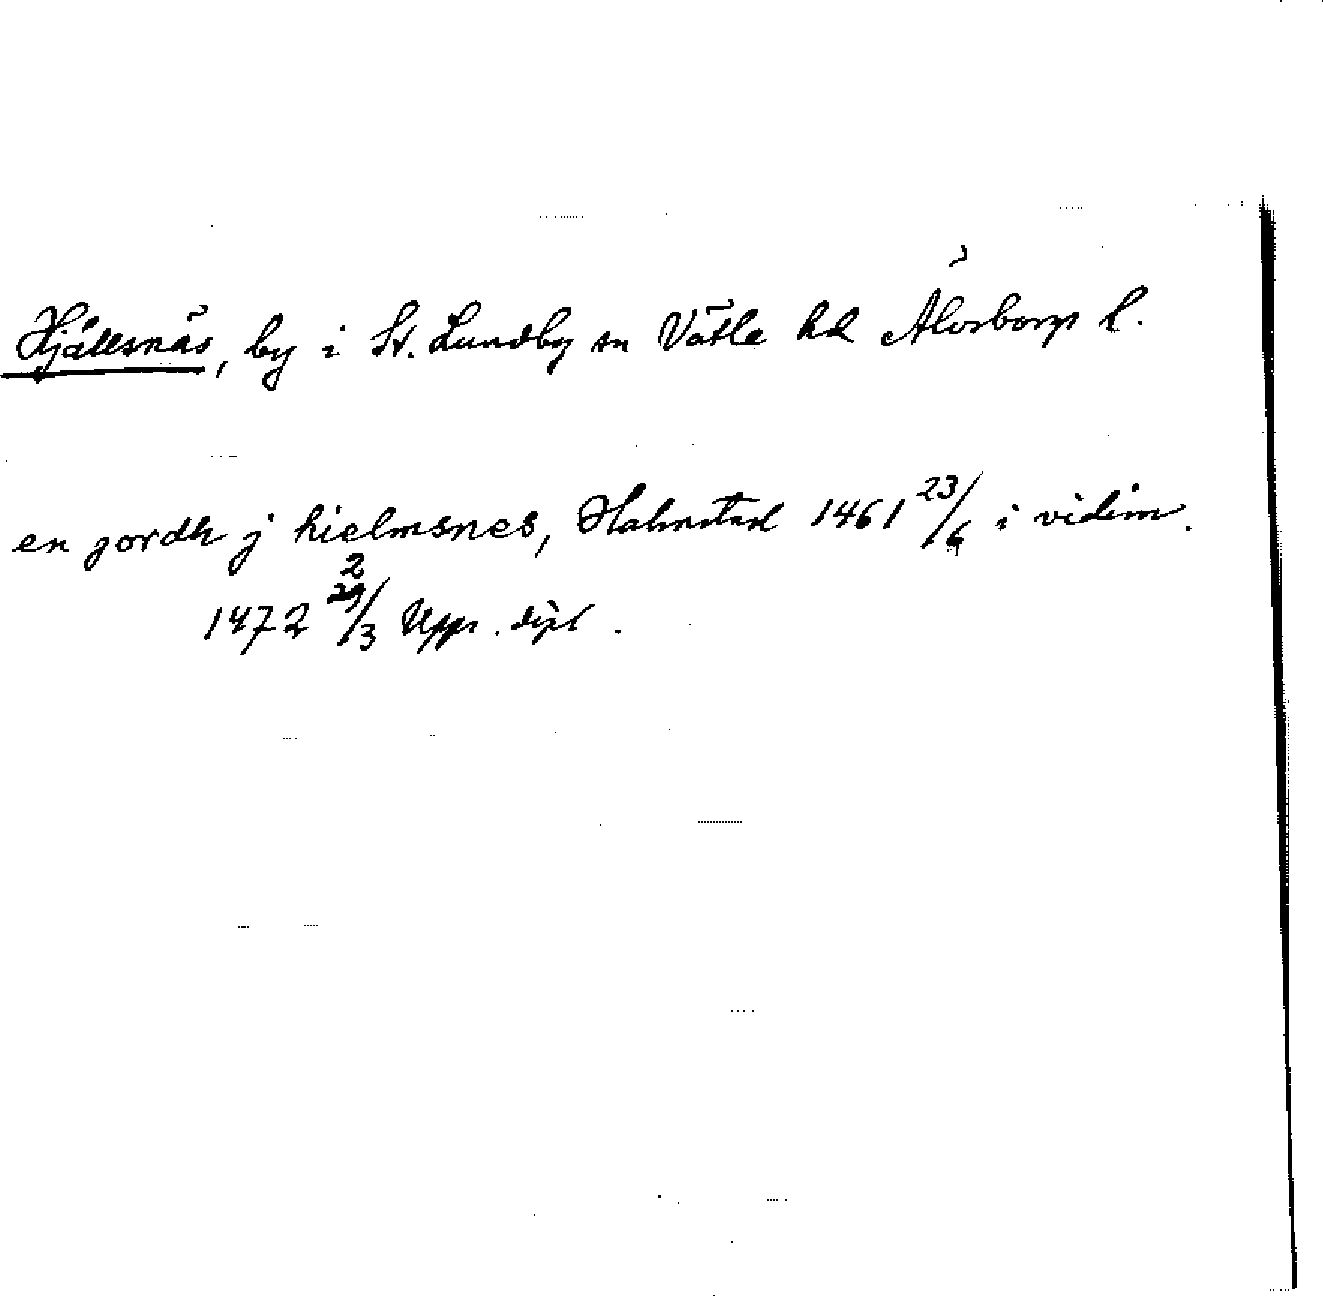 Hjällsnäs, by i St. Lundby sn Vätle hd Älvsborgs l.
en gordh j hielmsnes, Halmstad 1461 23/6 i vidim.
1472 2/3 Upps. dipl.